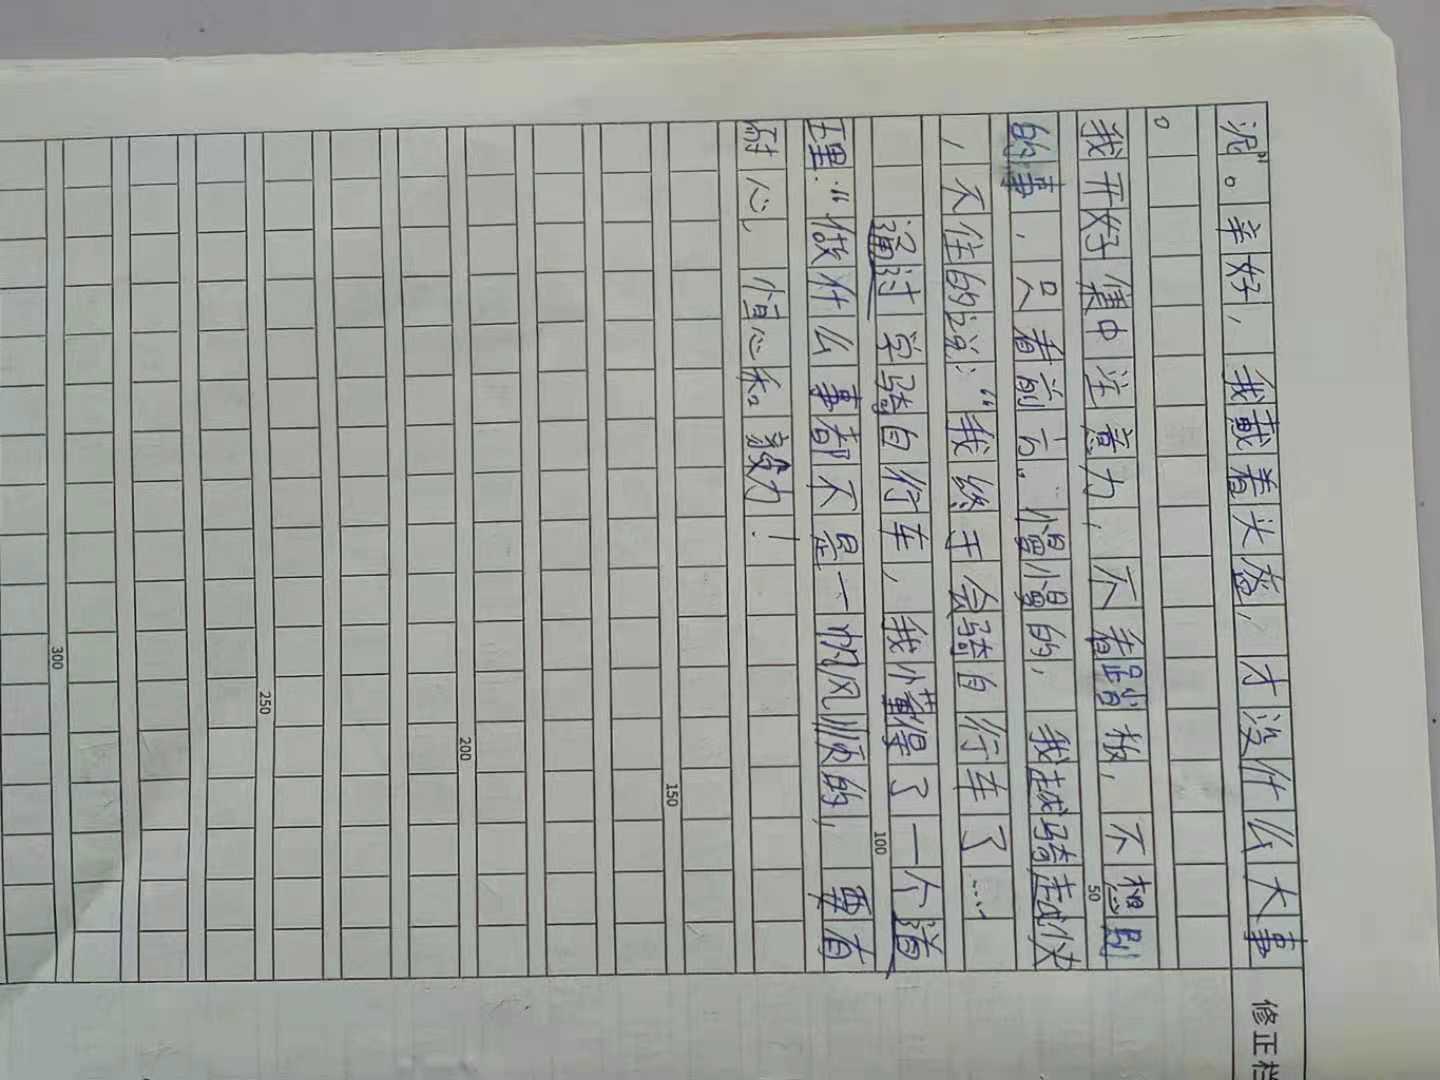 泥”。幸好，我戴着头盔，才没什么大事
。
我开好集中注意力，不看踏板，不想别
的事，只看前方。慢慢的，我越骑越快
，不住的说：“我终于会骑自行车了……
通过学骑自行车，我懂得了一个道
理：“做什么事都不是一帆风顺的，要有
耐心、恒心和毅力！
50
100
150
200
250
300
修正栏